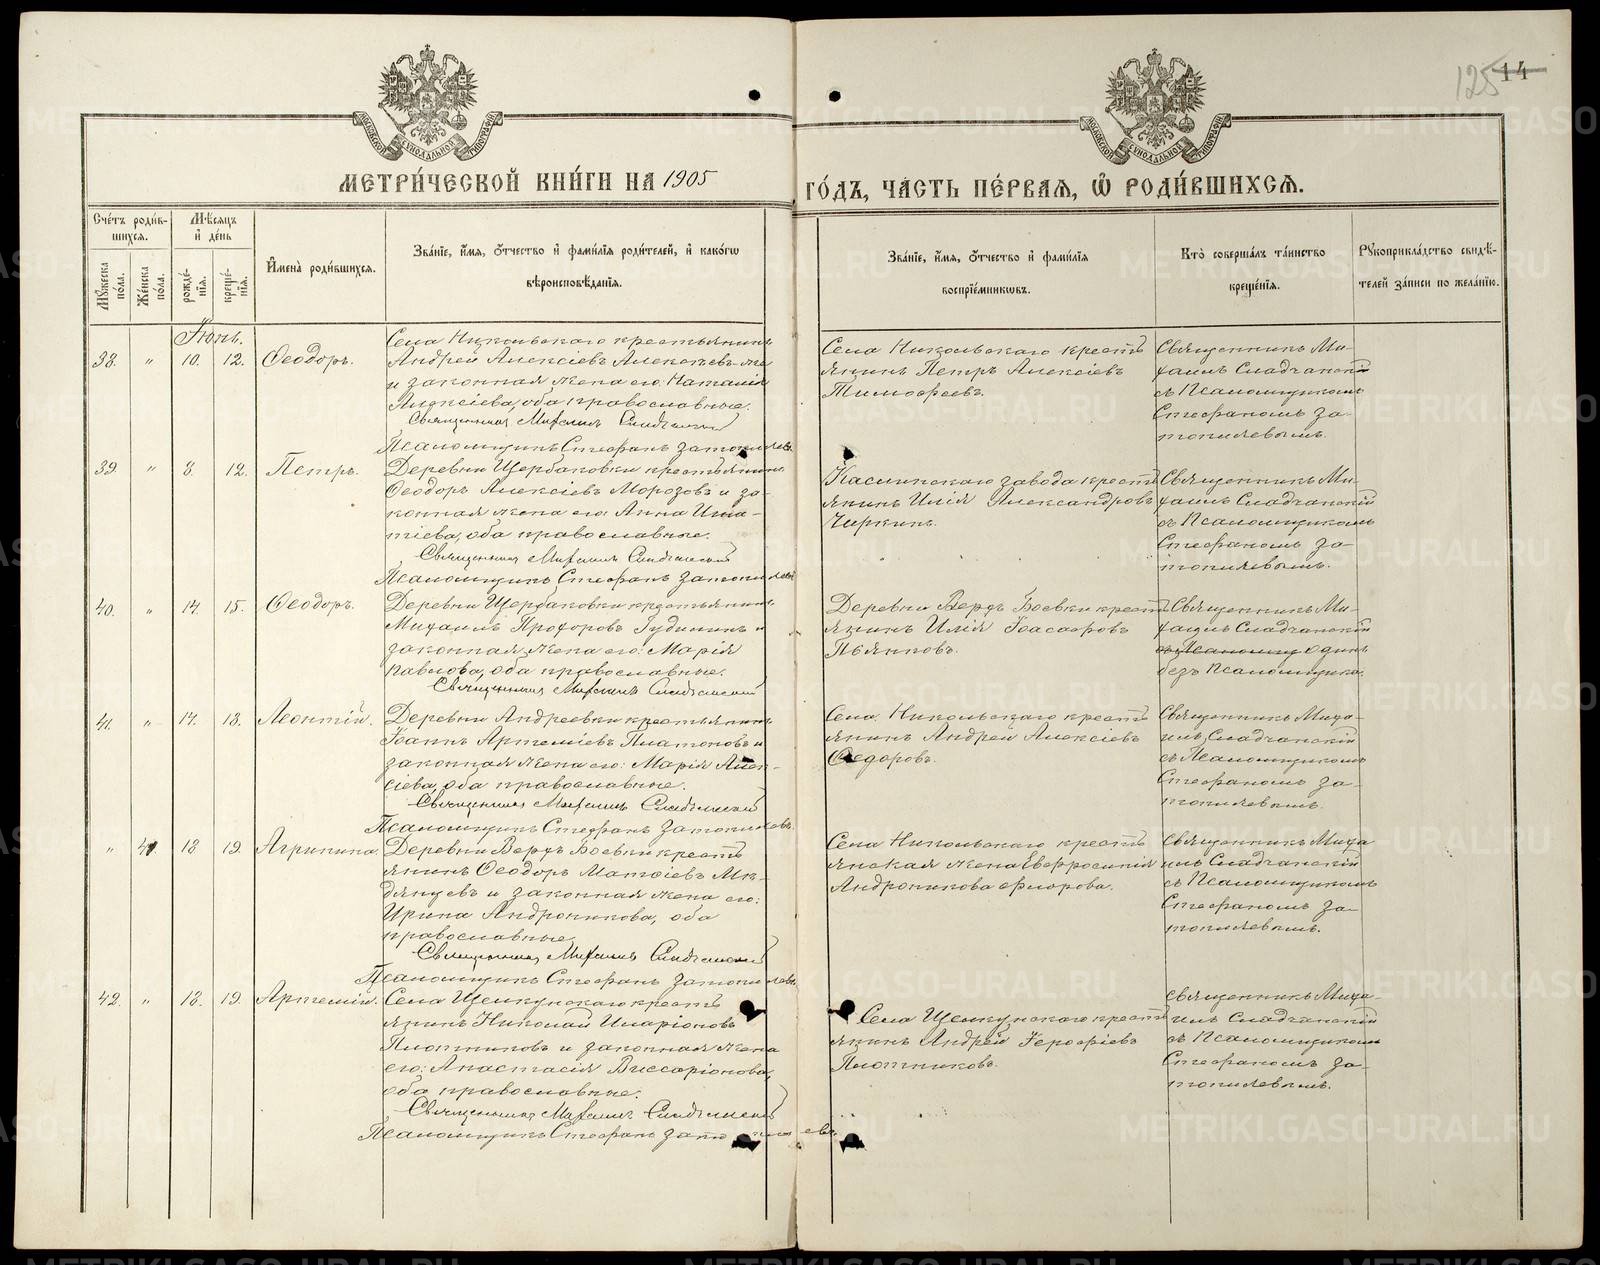 125 14
МЕТРИ́ЧЕСКОЙ КНИ́ГИ НА 1905
ГО́ДЪ, ЧА́СТЬ ПЕ́РВАЯ, Ѽ РОДИ́ВШИХСЯ.
Сче́тъ роди́в-
шихся.
Мѣ́сяцъ
и҆ де́нь
Мꙋ́жеска по́ла.
Же́нска по́ла.
рожде́-
нїя.
креще́-
нїя.
И҆мена̀ роди́вшихся.
Зва́нїе, и҆́мя, ѻ҆́тчество и҆ фами́лїя роди́телей, и҆ како́гѡ
вѣроисповѣ́данїя.
Зва́нїе, и҆́мя, ѻ҆́тчество и҆ фами́лїя
воспрїе́мникѡвъ.
Кто̀ соверша́лъ та́инство
креще́нїя.
Рꙋкоприкла́дство свидѣ́-
телей за́писи по жела́нїю.
Іюнь.
38. " 10. 12. Ѳеодоръ.
Села Никольскаго крестьянинъ
Андрей Алексіевъ
и законная жена его: Наталія
Алексіева, оба православные.
Священникъ Михаилъ Сладчанскій
Псаломщикъ Стефанъ Затопляевъ
Села Никольскаго кресть
янинъ Петръ Алексіевъ
Тимофеевъ.
Священникъ Ми-
хаилъ Сладчанскій
съ Псаломщикомъ
Стефаномъ За-
топляевымъ.
39 " 8. 12. Петръ.
Деревни Щербаковки крестьянинъ
Ѳеодоръ Алексіевъ Морозовъ и за-
конная жена его: Анна Игна-
тіева, оба православные.
Священникъ Михаилъ Сладчанскій
Псаломщикъ Стефанъ Затопляевъ
Каслинскаго завода кресть
янинъ Илія Александровъ
Чиркинъ.
Священникъ Ми-
хаилъ Сладчанскій
съ Псаломщикомъ
Стефаномъ За-
топляевымъ.
40. " 14. 15. Ѳеодоръ.
Деревни Щербаковки крестьянинъ
Михаилъ Прохоровъ Гудининъ и
законная жена его: Марія
Павлова, оба православные.
Священникъ Михаилъ Сладчанскій
Деревни Верхъ Боевки кресть
янинъ Илія Вассаровъ
Пьянковъ.
Священникъ Ми-
хаилъ Сладчанскій
съ Псаломщик одинъ
безъ Псаломщика.
41. " 17. 18. Леонтій.
Деревни Андреевки крестьянинъ
Іоаннъ Артеміевъ Платоновъ и
законная жена его: Марія Алек-
сіева, оба православные.
Священникъ Михаилъ Сладчанскій
Псаломщикъ Стефанъ Затопляевъ
Села Никольскаго кресть
янинъ Андрей Алексіевъ
Ѳедоровъ.
Священникъ Миха-
илъ Сладчанскій
съ Псаломщикомъ
Стефаномъ За-
топляевымъ.
" 41. 18 19. Агрипина.
Деревни Верхъ Боевки кресть
янинъ Ѳеодоръ Матѳіевъ Ме-
и законная жена его:
Ирина Андроникова, оба
православные.
Священникъ Михаилъ Сладчанскій
Псаломщикъ Стефанъ Затопляевъ
Села Никольскаго кресть
янская жена Евфросинія
Андроникова Флорова.
Священникъ Миха
илъ Сладчанскій
съ Псаломщикомъ
Стефаномъ За-
топляевымъ.
42. " 18. 19. Артемій.
Села Щелкунскаго кресть
янинъ Николай Иларіоновъ
Плотниковъ и законная жена
его: Анастасія Виссаріонова,
оба православные.
Священникъ Михаилъ Сладчанскій
Псаломщикъ Стефанъ Затопляевъ
Села Щелкунскаго кресть
янинъ Андрей Ерофіевъ
Плотниковъ.
Священникъ Миха-
илъ Сладчанскій
съ Псаломщикомъ
Стефаномъ За-
топляевымъ.
METRIKI.GASO-URAL.RU